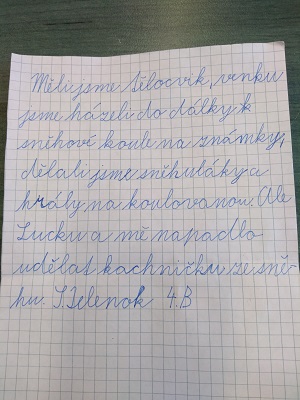 Měli jsme tělocvik, venku
jsme házeli do dálky k
sněhové koule na známky,
dělali jsme sněhuláky a
hrály na koulovanou. Ale
Lucku a mě napadlo
udělat kachničku ze sně-
hu. S. Jelenok 4.B